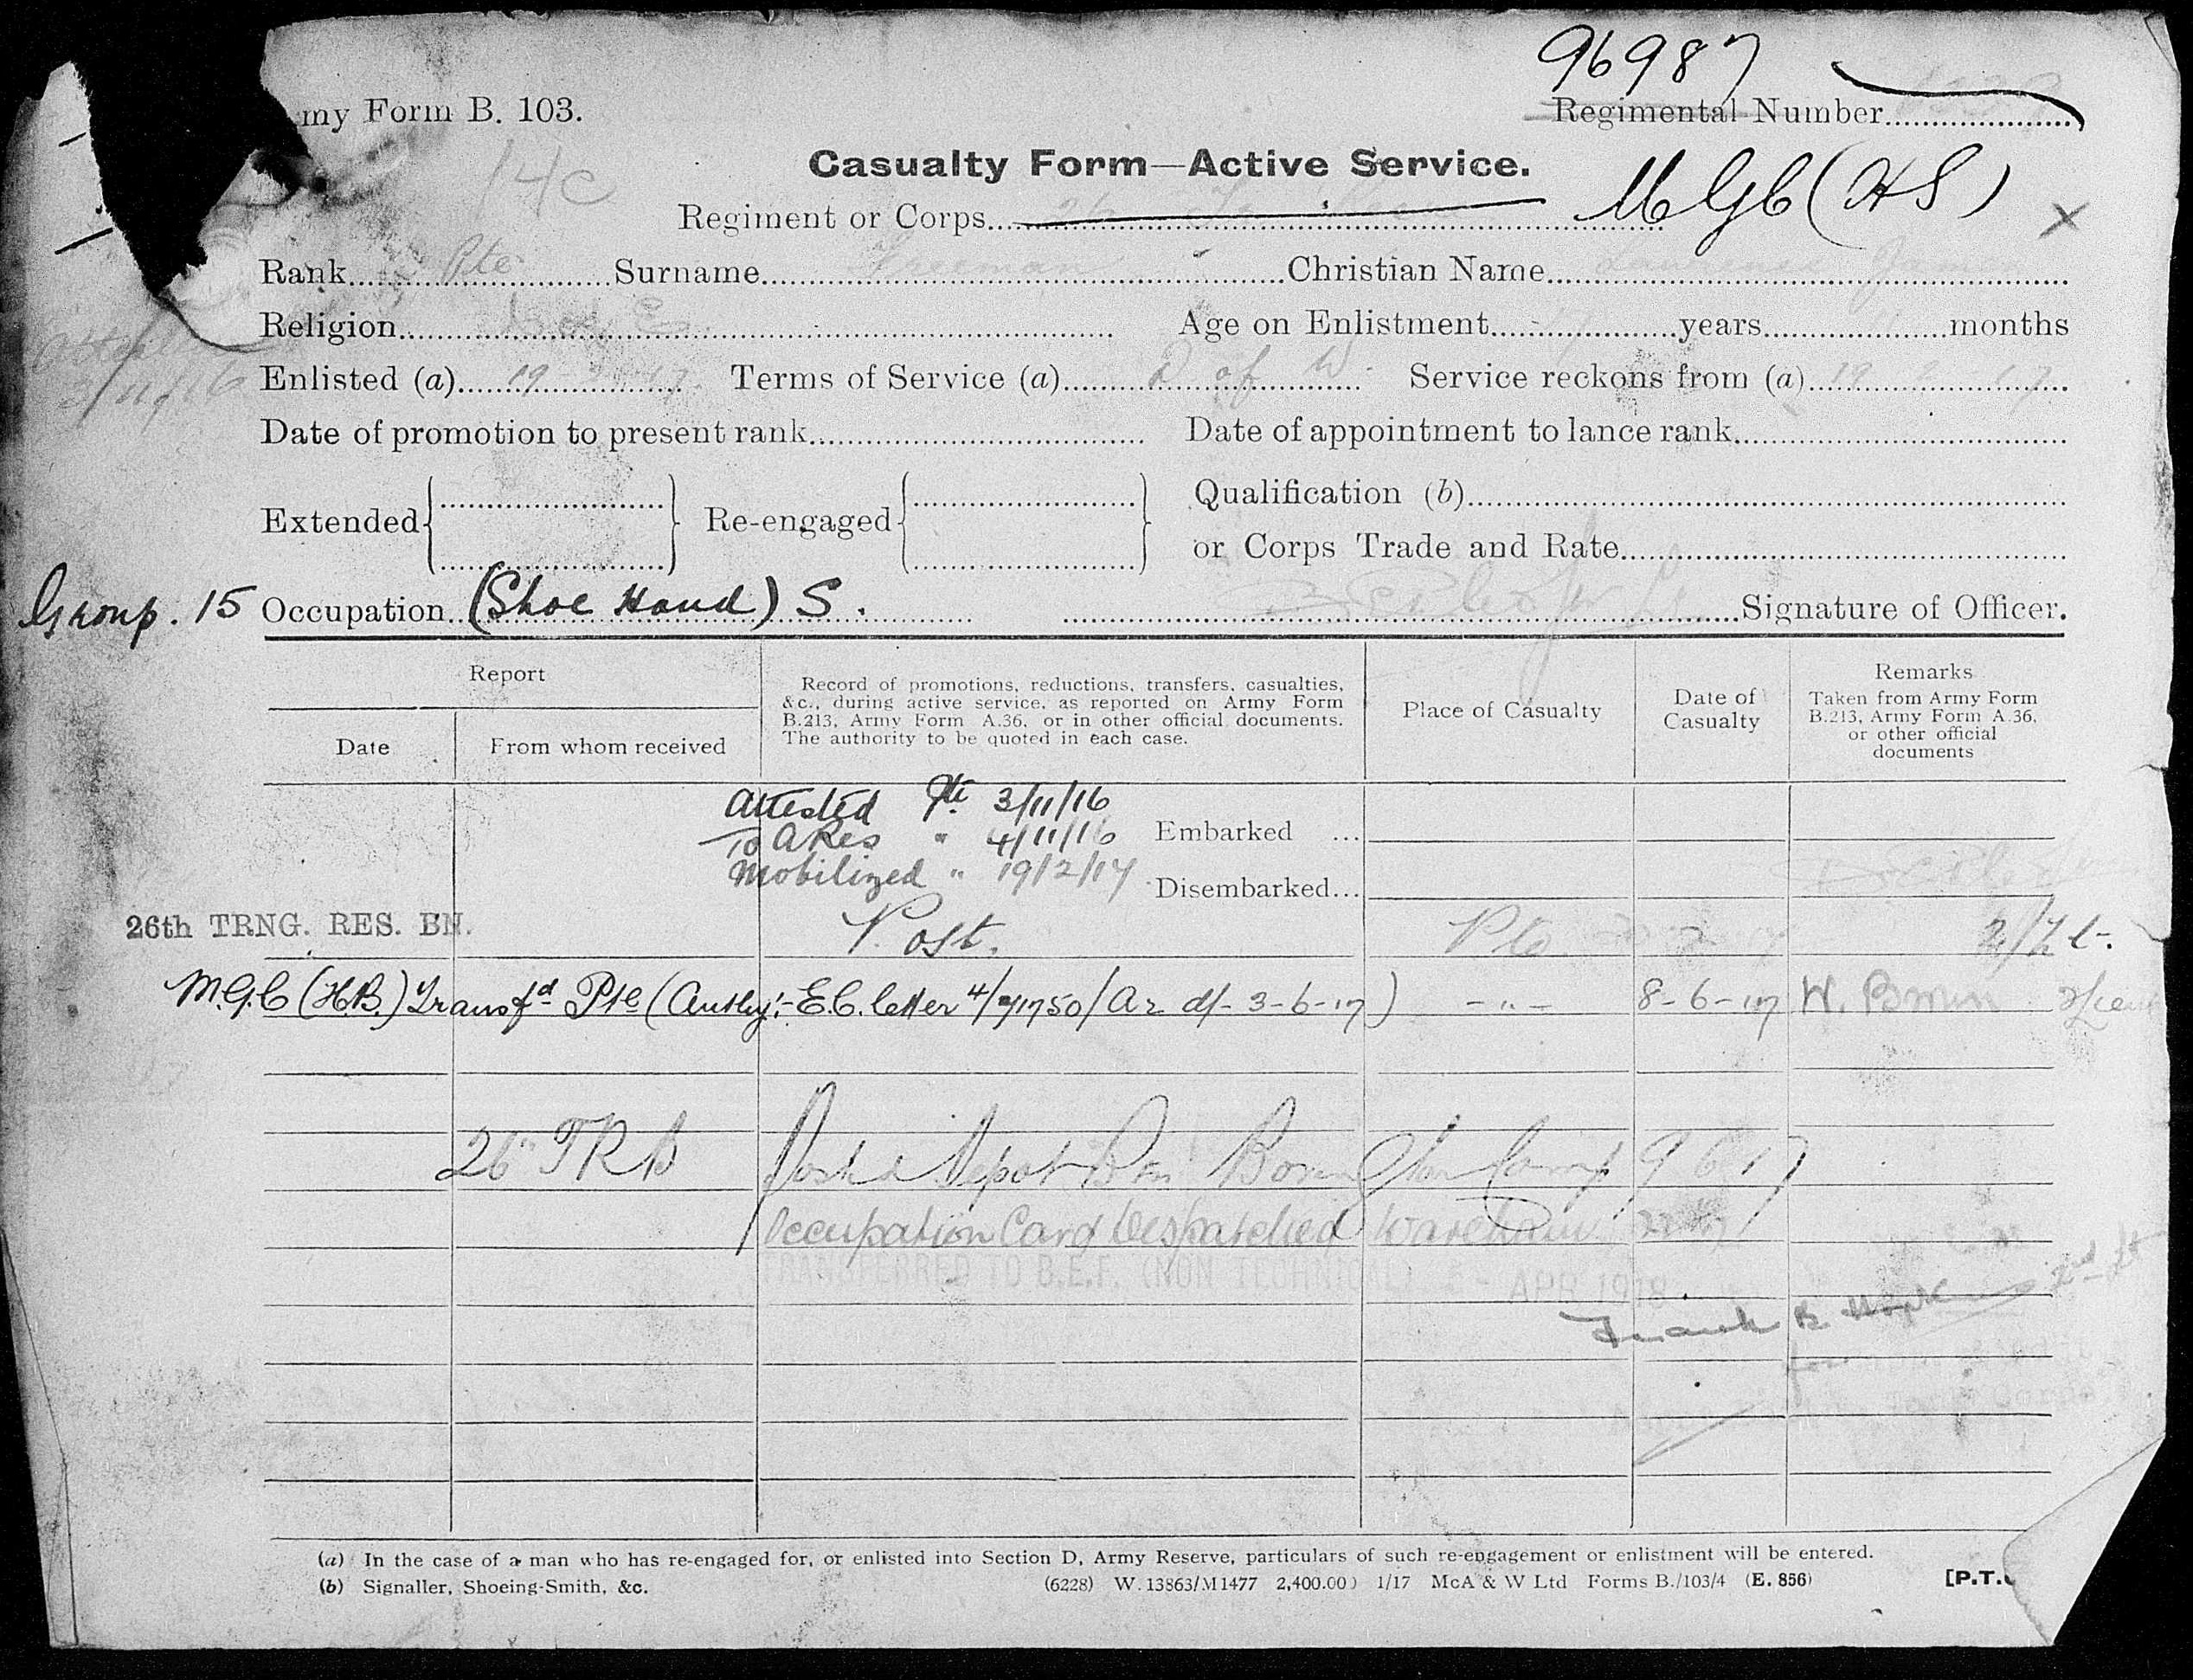 96987
my Form B. 103.
Regimental Number
14C
Casualty Form—Active Service.
Regiment or Corps MGC (HS) X
Rank Pte Surname Freeman Christian Name
Religion C of E. Age on Enlistment years months
3/11/16
Enlisted (a) 19-2-17. Terms of Service (a) D of W Service reckons from (a) 19 2 17
Date of promotion to present rank Date of appointment to lance rank
Extended Re-engaged Qualification (b)
or Corps Trade and Rate
Group. 15 Occupation (Shoe Hand) S. Signature of Officer.
Report
Date
From whom received
Record of promotions, reductions, transfers, casualties,
&c., during active service, as reported on Army Form
B.213, Army Form A.36, or in other official documents.
The authority to be quoted in each case.
Place of Casualty
Date of
Casualty
Remarks
Taken from Army Form
B.213, Army Form A.36,
or other official
documents
Attested Pte 3/11/16
To A Res " 4/11/16 Embarked ...
Mobilized " 19/2/17 Disembarked...
26th TRNG. RES. BN. Post. Pte 2/Lt.
M.G.C (H.B.) Transfd Pte (Authy:- E.C. letter df- 3-6-17) -"- 8-6-17 W. 2/Lieut
26 TRB Posted Depot Bn Bovington Camp 9 6 17
Occupation Card Despatched Wareham
TRANSFERRED TO B.E.F. (NON TECHNICAL) APR 1918
Frank B 2nd Lt
for
Tank Corps
(a) In the case of a man who has re-engaged for, or enlisted into Section D, Army Reserve, particulars of such re-engagement or enlistment will be entered.
(b) Signaller, Shoeing-Smith, &c. (6228) W.13863/M1477 2,400.00) 1/17 McA & W Ltd Forms B./103/4 (E. 856) [P.T.